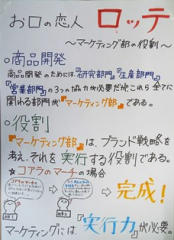 お口の恋人 ロッテ
〜マーケティング部の役割〜
◎商品開発
商品開発のためには『研究部門』『生産部門』
『営業部門』の3つの協力が必要だがこれら全てに
関わる部門が『マーケティング部』である。
◎役割
『マーケティング部』は、ブランド戦略を
考え、それを実行する役割である。
★コアラのマーチの場合
完成!
マーケティングには『実行力』が必要。